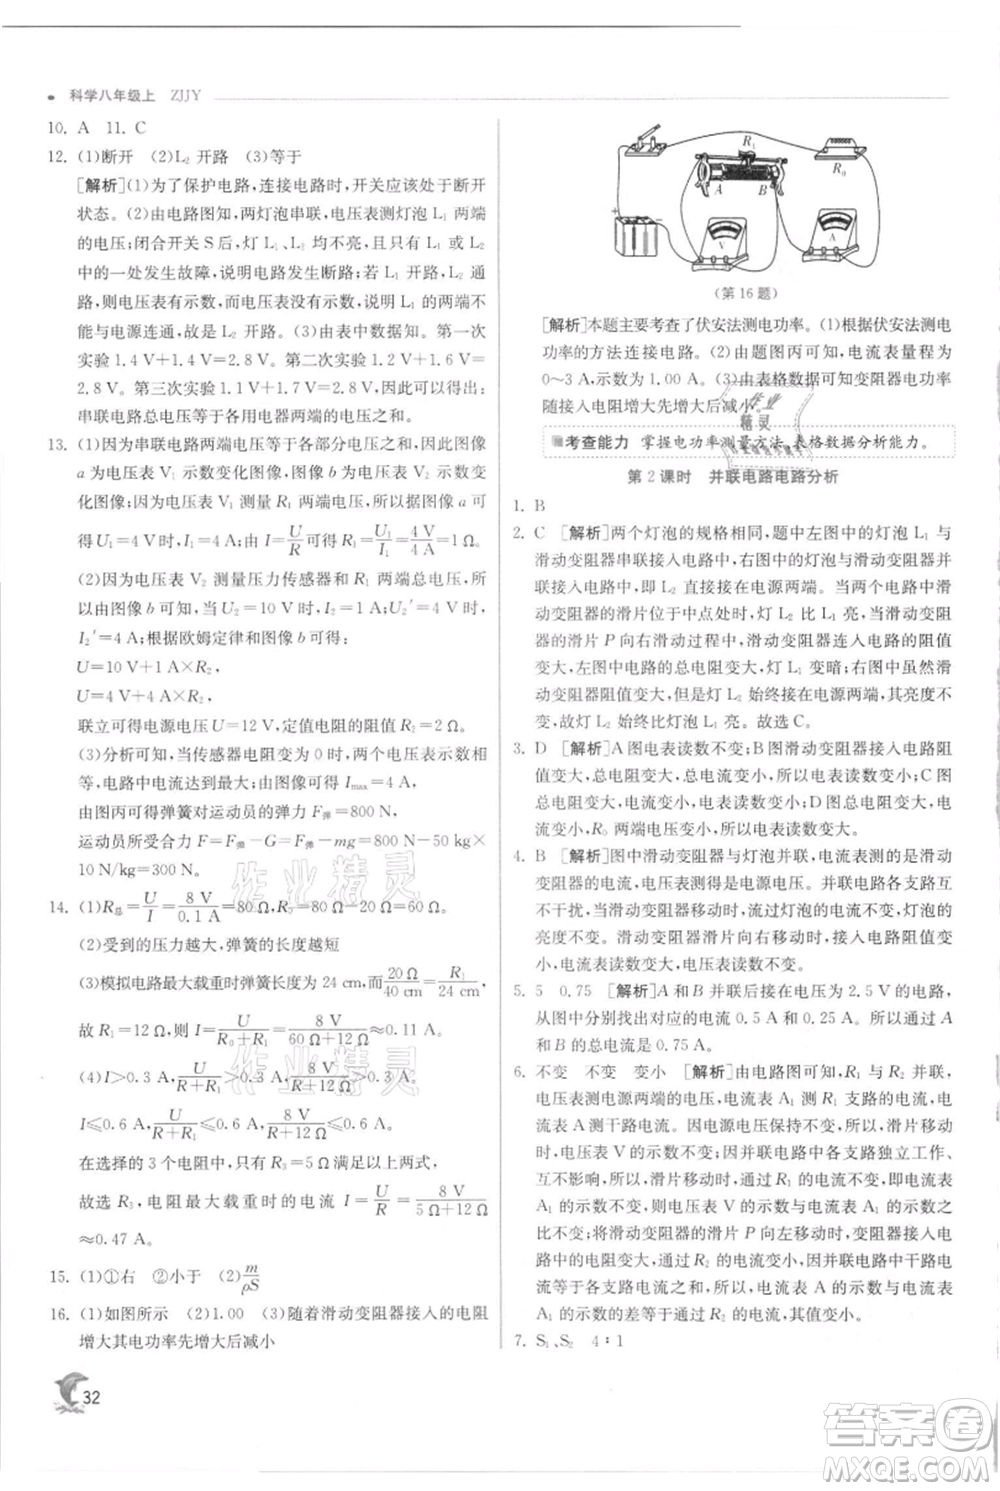 科学八年级上 ZJJY
10. A 11. C
12. (1)断开 (2)L₂开路 (3)等于
[解析](1)为了保护电路,连接电路时,开关应该处于断开
状态。(2)由电路图知,两灯泡串联,电压表测灯泡 L₁ 两端
的电压;闭合开关 S 后,灯 L₁、L₂ 均不亮,且只有 L₁ 或 L₂
中的一处发生故障,说明电路发生断路;若 L₁ 开路,L₂ 通
路,则电压表有示数;电压表无示数,说明 L₁ 的两端不
能与电源连通,故是 L₂ 开路。(3)由表中数据知。第一次
实验 1.4 V+1.4 V=2.8 V。第二次实验 1.2 V+1.6 V=
2.8 V。第三次实验 1 V+1.8 V=2.8 V。由此得出结论:
串联电路总电压等于各用电器两端的电压之和。
13. (1)因为串联电路两端电压等于各部分电压之和,因此图像
a 为电压表 V₁ 示数变化图像,图像 b 为电压表 V₂ 示数变
化图像。因为电压表 V₁ 测量 R₁ 两端电压,由图像 a 可
得 U₁=4 V 时,I₁=4 A,由 I=U/R 可得 R₁=U₁/I₁=4 V/4 A=1 Ω。
(2)因为电压表 V₂ 测量压力传感器和 R₁ 两端总电压,所
以由图像 b 可得,当 U₂=10 V 时,I₂=1 A;当 U₂′=4 V 时,
I₂′=4 A;根据欧姆定律和图像 b 可得:
U=10 V+1 A×R₂,
U=4 V+4 A×R₂,
联立可得电源电压 U=12 V,定值电阻的阻值 R₂=2 Ω。
(3)分析可知,当传感器电阻变为 0 时,两个电压表示数相
等,电路中电流达到最大值,由图像可得 Imax=4 A。
由图丙可得弹簧对运动员的弹力 F弹=800 N,
运动员所受合力 F=F弹-G=F弹-mg=800 N-50 kg×
10 N/kg=300 N。
14. (1)R总=U/I=8 V/0.1 A=80 Ω,R₀=80 Ω-20 Ω=60 Ω
(2)受到的压力越大,弹簧的长度越短
(3)模拟电路最大载重时弹簧长度为 24 cm,而20 Ω/40 cm=R₁/24 cm,
故 R₁=12 Ω,则 I=U/(R₀+R₁)=8 V/(60 Ω+12 Ω)≈0.11 A。
(4)I>0.3 A,U/(R+R₁)>0.3 A,8 V/(R+12 Ω)>0.3 A
I≤0.6 A,U/(R+R₁)≤0.6 A,8 V/(R+12 Ω)≤0.6 A
在选择的 3 个电阻中,只有 R₃=5 Ω 满足以上两式。
故选 R₃,电阻最大载重时的电流 I=U/R=8 V/(5 Ω+12 Ω)
≈0.47 A。
15. (1)①右 ②小于 (2)m/ρS
16. (1)如图所示 (2)1.00 (3)随着滑动变阻器接入的电阻
增大其电功率先增大后减小
32
R₁
R₀
A B
V
A
(第 16 题)
[解析]本题主要考查了伏安法测电功率。(1)根据伏安法测电
功率的方法连接电路。(2)由题图丙可知,电流表量程为
0~3 A,示数为 1.00 A。(3)由表格数据可知变阻器电功率
随接入电阻增大先增大后减小。
考查能力 掌握电功率测量方法,表格数据分析能力。
第 2 课时 并联电路电路分析
1. B
2. C [解析]两个灯泡的规格相同,题中左图中的灯泡 L₁ 与
滑动变阻器串联接入电路中,右图中的灯泡与滑动变阻器并
联接入电路中,即 L₂ 直接接在电源两端。当两个滑动变
阻器的滑片位于中点处时,灯 L₂ 比 L₁ 亮,当滑动变阻
器的滑片 P 向右滑动过程中,滑动变阻器连入电路的阻值
变大,左图中电路的总电阻变大,灯 L₁ 变暗;右图中虽然滑动
变阻器阻值变大,但是灯 L₂ 始终接在电源两端,其亮度不
变,故灯 L₂ 始终比 L₁ 亮。故选 C。
3. D [解析]A 图电表读数不变;B 图滑动变阻器接入电路阻
值变大,总电阻变大,总电流变小,所以电表读数变小;C 图
总电阻变大,总电流变小,所以电表读数变小;D 图总电流变
小,R₀ 两端电压变小,所以电压表读数变大。
4. B [解析]图中滑动变阻器与灯泡并联,电流表测的是滑动
变阻器的电流,电压表测的是电源电压。并联电路各支路互
不干扰,所以滑动变阻器移动时,流过灯泡的电流不变,灯泡的
亮度不变。滑动变阻器滑片向右移动时,接入电路阻值变
小,电流表读数变大,电压表读数不变。
5. 5 0.75 [解析]A 和 B 并联后接在电压为 2.5 V 的电路,
从图中分别找出对应的电流 0.5 A 和 0.25 A。所以通过 A
和 B 的总电流是 0.75 A。
6. 不变 不变 变小 [解析]由电路图可知,R₁ 与 R₂ 并联,
电压表测电源两端的电压,电流表 A₁ 测 R₁ 支路的电流,电流
表 A 测干路电流。因电源电压保持不变,所以,滑片移动时,电
压表的示数不变。因并联电路中各支路独立工作、
互不影响,所以通过 R₁ 的电流不变,即电流表
A₁ 的示数不变,则电压表 V 的示数与电流表 A₁ 的示数之
比不变;将滑动变阻器的滑片 P 向左移动时,变阻器接入电
路中的电阻变大,通过 R₂ 的电流变小,因并联电路中干路电流
等于各支路电流之和,所以,电流表 A 的示数变小,电流表
A₁ 的示数的差等于通过 R₂ 的电流,则其差值变小。
7. S₁、S₂ 4∶1
作业精灵
作业精灵
作业
精灵
答案圈
MXQE.COM